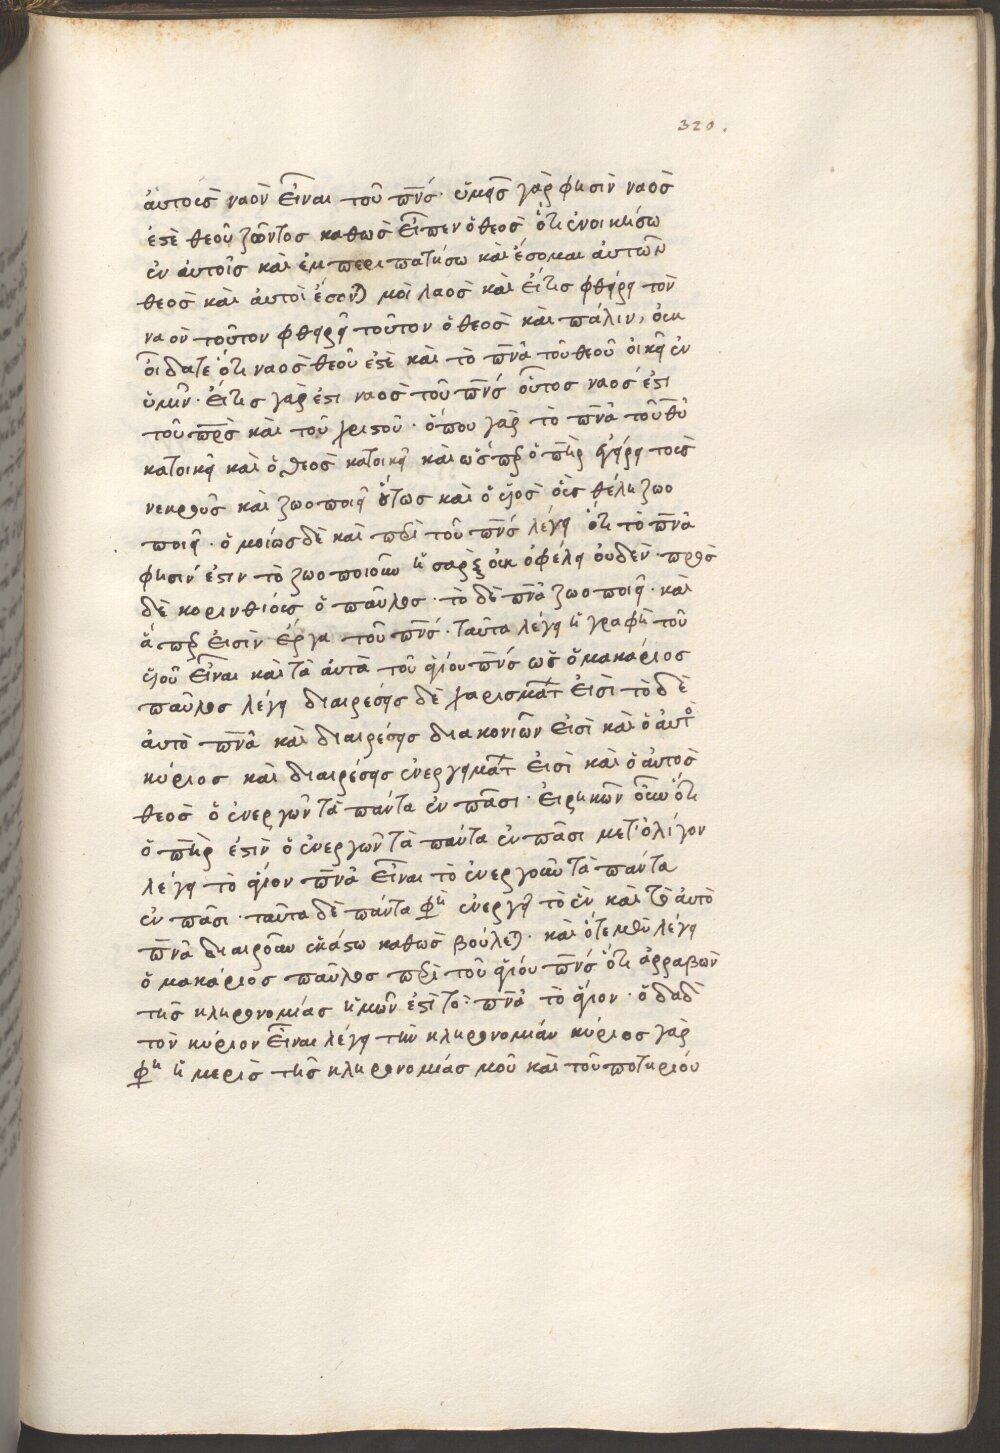 320.
ἀυτοῖς ναὸν εἶναι τοῦ π̅ν̅ς̅· ὑμεῖς γὰρ φησὶν ναὸς
ἐστὲ θεοῦ ζῶντος καθὼς εἶπεν ὁ θεὸς ὅτι ἐνοικήσω
ἐν ἀυτοῖς καὶ ἐμπεριπατήσω καὶ ἔσομαι ἀυτῶν
θεὸς καὶ ἀυτοὶ ἔσονται μοὶ λαὸς καὶ εἴτις φθείρει τὸν
ναὸν τοῦτον φθερεῖ τοῦτον ὁ θεὸς καὶ πάλιν, ὀυκ
οἴδατε ὅτι ναὸς θεοῦ ἐστὲ καὶ τὸ π̅ν̅α̅ τοῦ θεοῦ ὀικεῖ ἐν
ὑμῖν· εἴτις γάρ ἐστι ναὸς τοῦ π̅ν̅ς̅ οὗτος ναός ἐστι
τοῦ π̅ρ̅ς̅ καὶ τοῦ χριστοῦ· ὅπου γὰρ τὸ π̅ν̅α̅ τοῦ θ̅υ̅
κατοικεῖ καὶ ὁ θεὸς κατοικεῖ καὶ ὥσπερ ὁ π̅η̅ρ̅ ἐγείρει τοὺς
νεκροὺς καὶ ζωοποιεῖ οὕτως καὶ ὁ υἱὸς οὓς θέλει ζωο
ποιεῖ· ὁμοίως δὲ καὶ περὶ τοῦ π̅ν̅ς̅ λέγει ὅτι τὸ π̅ν̅α̅
φησίν ἐστιν τὸ ζωοποιοῦν ἡ σὰρξ οὐκ ὀφελεῖ ὀυδὲν· πρὸς
δὲ κορινθίους ὁ παῦλος· τὸ δὲ π̅ν̅α̅ ζωοποιεῖ· καὶ
ἅπερ εἰσὶν ἔργα τοῦ π̅ν̅ς̅· ταῦτα λέγει ἡ γραφὴ τοῦ
υἱοῦ εἶναι καὶ τὰ ἀυτὰ τοῦ ἁγίου π̅ν̅ς̅ ὡς ὁ μακάριος
παῦλος λέγει διαιρέσεις δὲ χαρισμάτ εἰσὶ τὸ δὲ
ἀυτὸ π̅ν̅α̅ καὶ διαιρέσεις διακονιῶν εἰσὶ καὶ ὁ ἀυτὸ
κύριος καὶ διαιρέσεις ἐνεργημάτ εἰσὶ καὶ ὁ ἀυτὸς
θεὸς ὁ ἐνεργῶν τὰ πάντα ἐν πᾶσι· εἰρηκῶν οὖν ὅτι
ὁ π̅η̅ρ̅ ἐστὶν ὁ ἐνεργῶν τὰ πάντα ἐν πᾶσι μετ' ὀλίγον
λέγει τὸ ἅγιον π̅ν̅α̅ εἶναι τὸ ἐνεργοῦν τὰ πάντα
ἐν πᾶσι· ταῦτα δὲ πάντα φη ἐνεργεῖ τὸ ἓν καὶ τὸ ἀυτὸ
π̅ν̅α̅ διαιροῦν ἑκάστω καθὼς βούλεται· καὶ ὅτε μὲν λέγει
ὁ μακάριος παῦλος περὶ τοῦ ἁγίου π̅ν̅ς̅ ὅτι ἀρραβὼν
τῆς κληρονομίας ἡμῶν ἐστὶ τὸ· π̅ν̅α̅ τὸ ἅγιον· ὁ δαδ
τὸν κύριον εἶναι λέγει τὴν κληρονομιάν κύριος γὰρ
φη ἡ μερὶς τῆς κληρονομίας μοῦ καὶ τοῦ ποτηριόυ